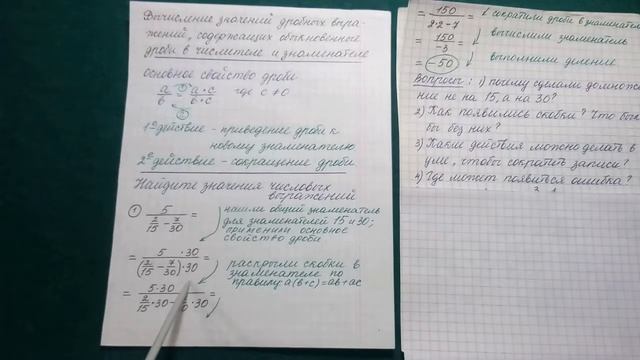 Вычисление значений дробных выра-
жений, содержащих обыкновенные
дроби в числителе и знаменателе
основное свойство дроби
①
a/b = a·c/b·c где c ≠ 0
②
1ᵒᵉ действие - приведение дроби к
новому знаменателю
2ᵒᵉ действие - сокращение дроби
Найдите значения числовых
выражений
① 5/(2/15 - 7/30) =
нашли общий знаменатель
для знаменателей 15 и 30;
применили основное
свойство дроби
= 5 ·30/(2/15 - 7/30)·30 =
раскрыли скобки в
знаменателе по
правилу: a(b+c)=ab+ac
= 5·30/(2/15·30 - /0·30) =
= 150/(2·2-7) =
сократили дроби в знаменател
= 150/-3 =
вычислили знаменатель
= -50
выполнили деление
Вопросы: 1) почему сделали домноже
ние не на 15, а на 30?
2) Как появились скобки? Что был
бы без них?
3) Какие действия можно делать в
уме, чтобы сократить записи?
4) Где может появиться ошибка?